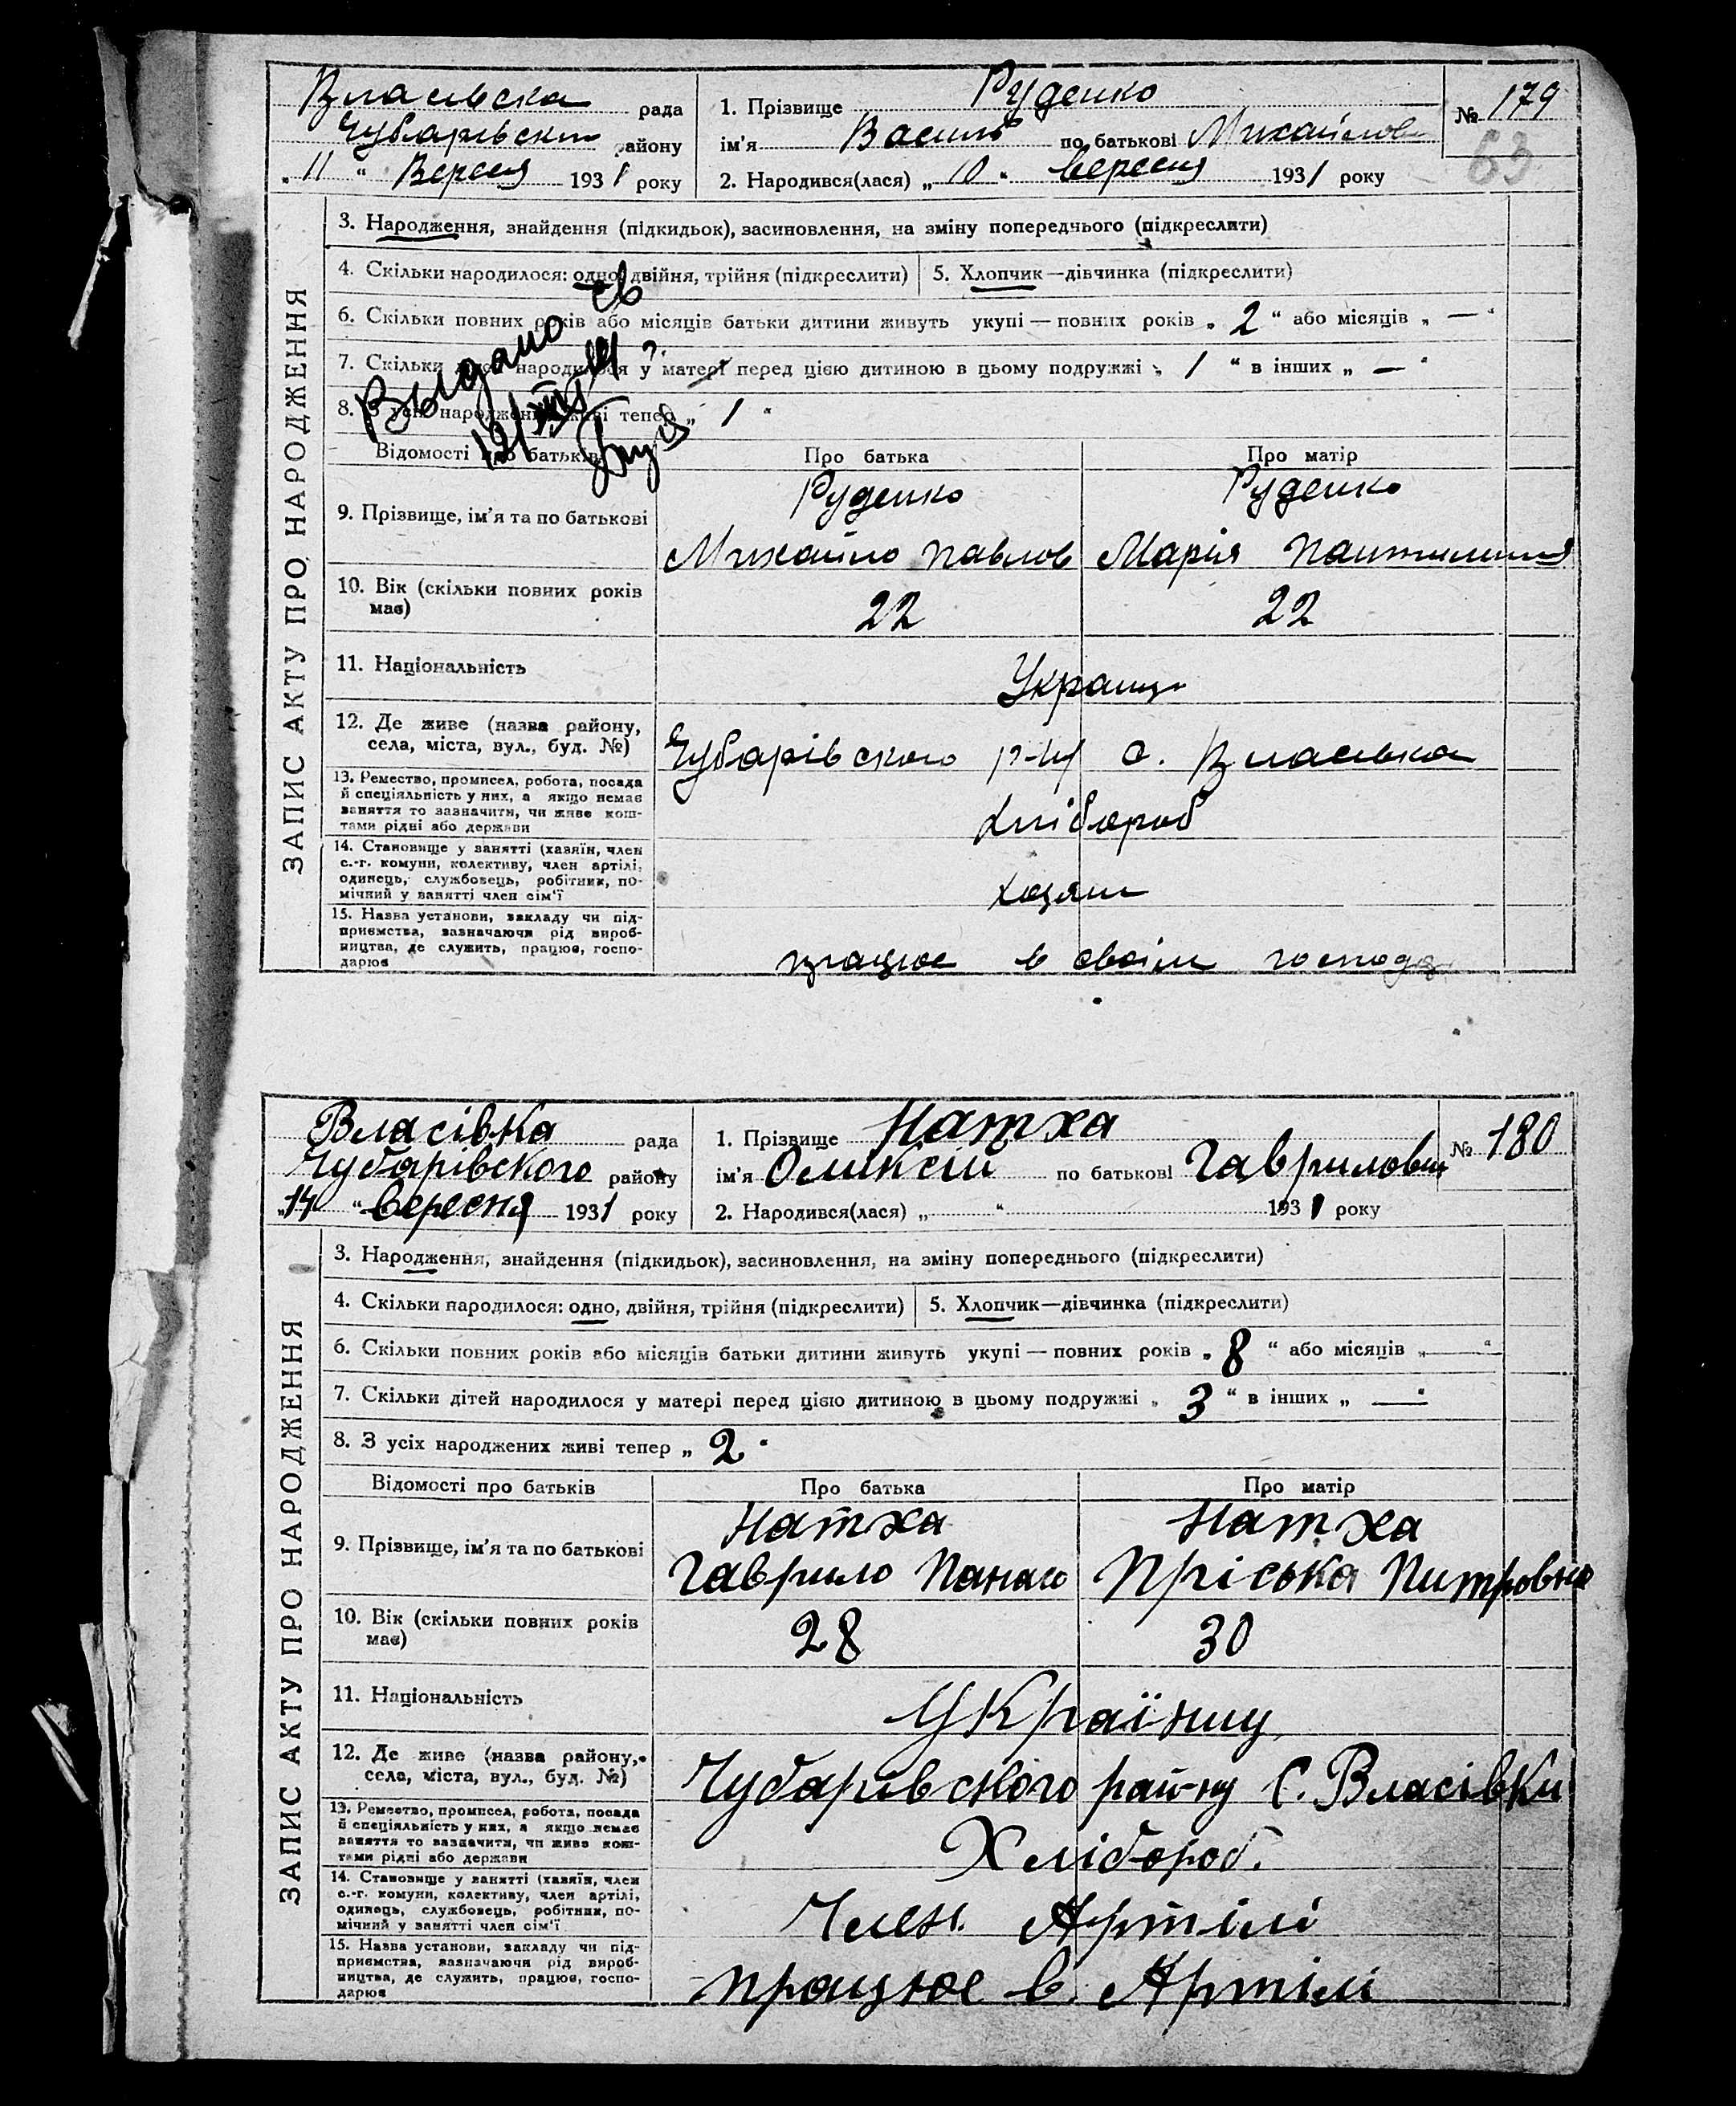 Власівска рада
Чубарівский району
„ 11 “ Вересня 1931 року
1. Прізвище Руденко
ім'я Василь по батькові Михайлов
2. Народився(лася) „ 10 “ вересня 1931 року
№ 179
63
ЗАПИС АКТУ ПРО НАРОДЖЕННЯ
3. Народження, знайдення (підкидьок), засиновлення, на зміну попереднього (підкреслити)
4. Скільки народилося: одно, двійня, трійня (підкреслити) 5. Хлопчик—дівчинка (підкреслити)
6. Скільки повних років або місяців батьки дитини живуть укупі — повних років „ 2 “ або місяців „ — “
7. Скільки дітей народилося у матері перед цією дитиною в цьому подружжі „ 1 “ в інших „ — “
8. З усіх народжених живі тепер „ 1 “
Выдано св
Відомості про батьків Про батька Про матір
9. Прізвище, ім'я та по батькові
Руденко Руденко
Михайло Павлов Марія
10. Вік (скільки повних років має)
22 22
11. Національність
Украинц
12. Де живе (назва району, села, міста, вул., буд. №)
Чубарівского р-ну с. Власівка
13. Ремество, промисел, робота, посада й спеціяльність у них, а якщо немає заняття то зазначити, чи живе коштами рідні або держави
Хлібороб
14. Становище у занятті (хазяїн, член с.-г. комуни, колективу, член артілі, одинець, службовець, робітник, помічний у занятті член сім'ї
хозяин
15. Назва установи, закладу чи підприємства, зазначаючи рід виробництва, де служить, працює, господарює
працює в своїм господ
Власівка рада
Чубарівского району
„ 14 “ вересня 1931 року
1. Прізвище Натха
ім'я Оликсій по батькові Гаврилович
2. Народився(лася) „ “ 1931 року
№ 180
ЗАПИС АКТУ ПРО НАРОДЖЕННЯ
3. Народження, знайдення (підкидьок), засиновлення, на зміну попереднього (підкреслити)
4. Скільки народилося: одно, двійня, трійня (підкреслити) 5. Хлопчик—дівчинка (підкреслити)
6. Скільки повних років або місяців батьки дитини живуть укупі — повних років „ 8 “ або місяців „ — “
7. Скільки дітей народилося у матері перед цією дитиною в цьому подружжі „ 3 “ в інших „ — “
8. З усіх народжених живі тепер „ 2 “
Відомості про батьків Про батька Про матір
9. Прізвище, ім'я та по батькові
Натха Натха
Гаврило Панасо Пріська Питровна
10. Вік (скільки повних років має)
28 30
11. Національність
Українці
12. Де живе (назва району, села, міста, вул., буд. №)
Чубарівского рай-ну С. Власівки
13. Ремество, промисел, робота, посада й спеціяльність у них, а якщо немає заняття то зазначити, чи живе коштами рідні або держави
Хлібороб.
14. Становище у занятті (хазяїн, член с.-г. комуни, колективу, член артілі, одинець, службовець, робітник, помічний у занятті член сім'ї
Член Артілі
15. Назва установи, закладу чи підприємства, зазначаючи рід виробництва, де служить, працює, господарює
працює в Артілі